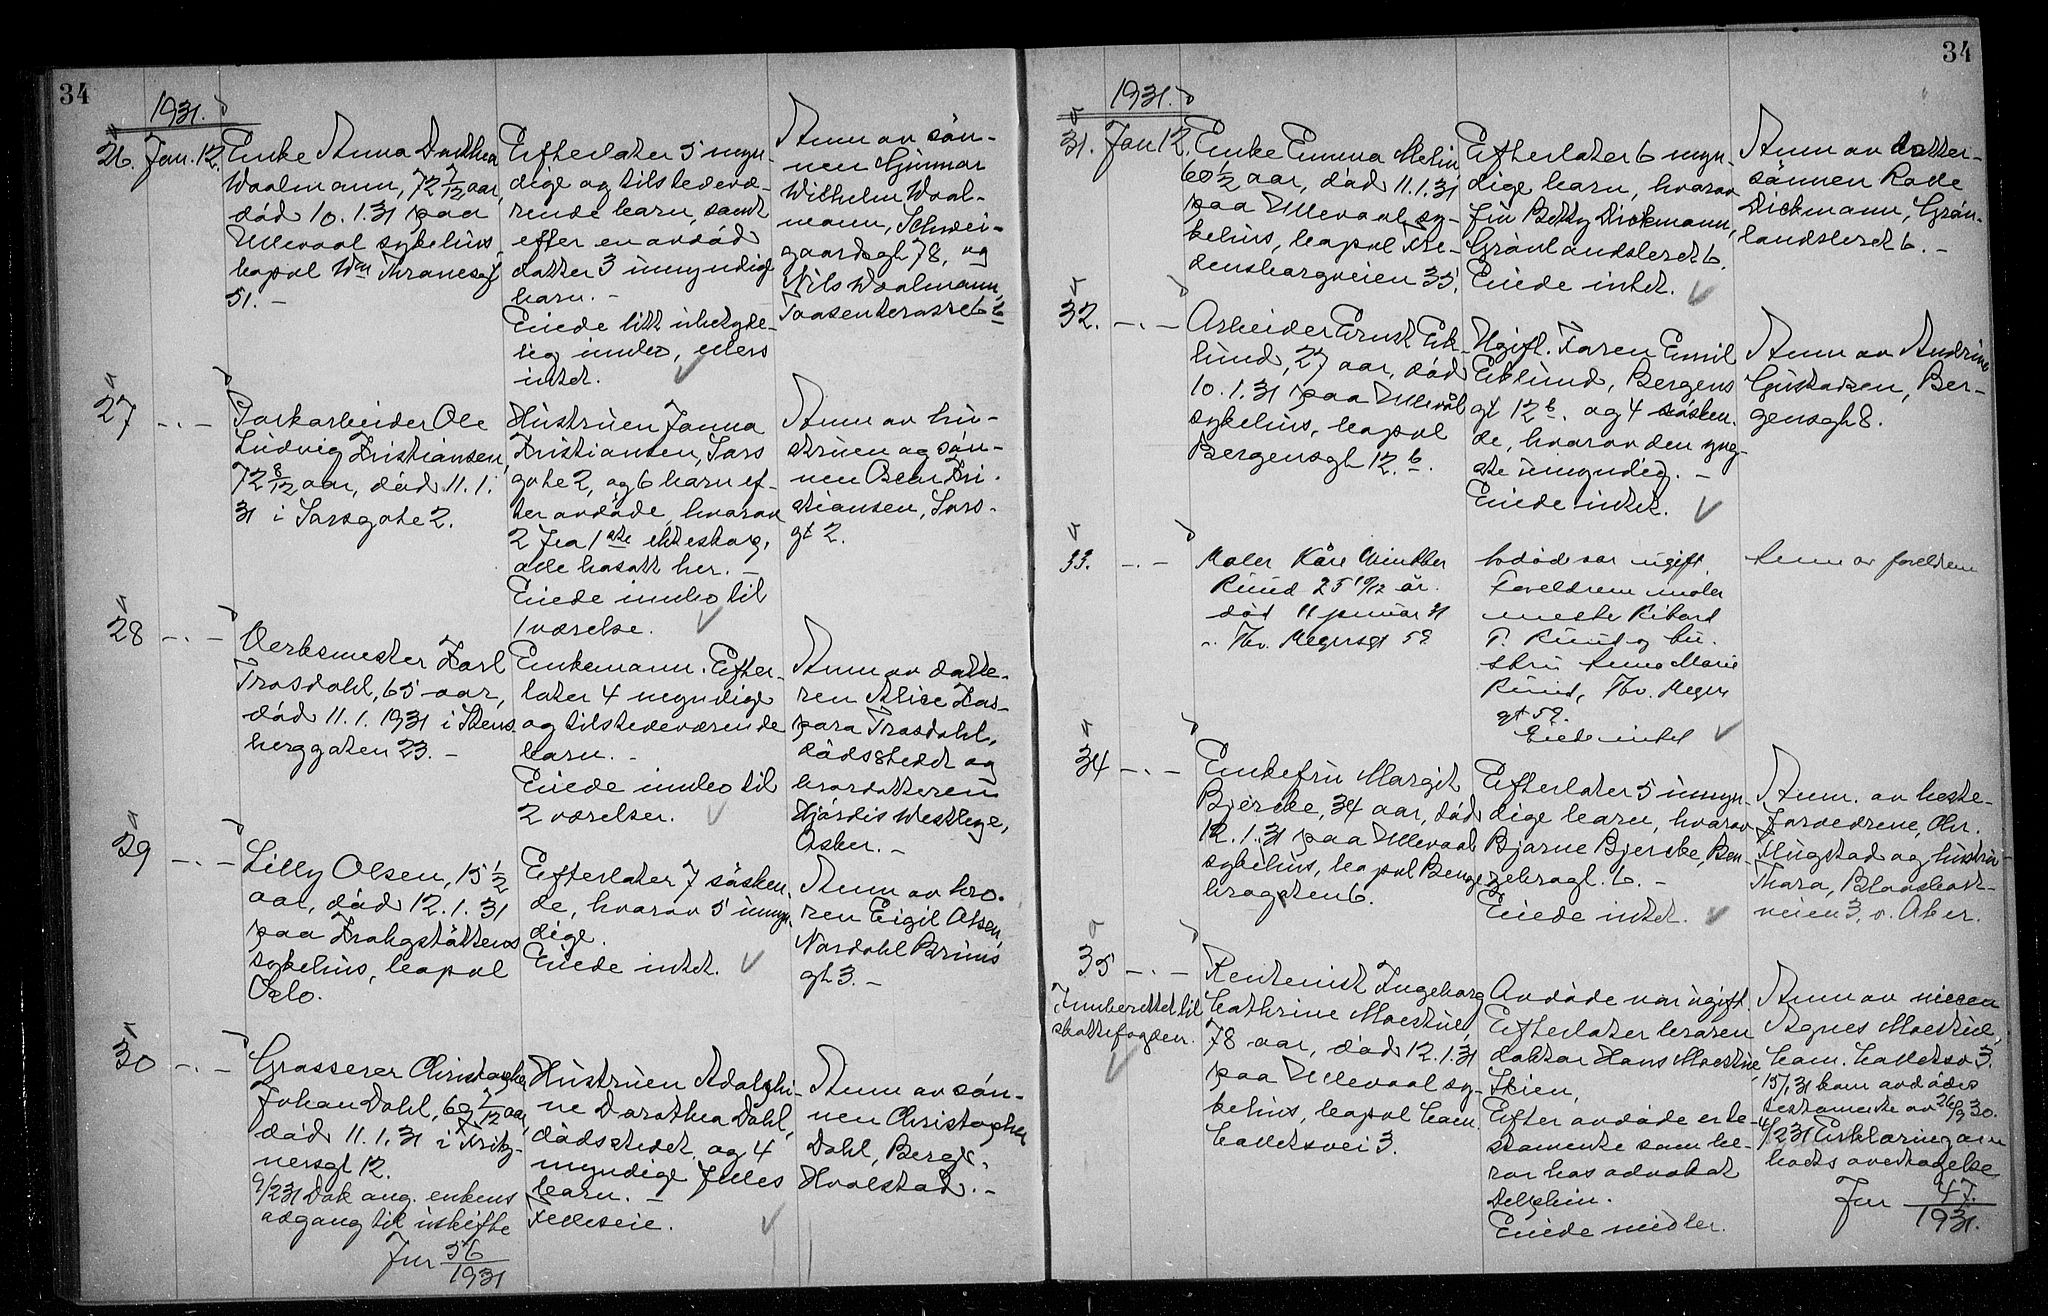 34
1931.
26. Jan. 12. Enke Anna Dorthea
Waalmann, 72 7/12 aar,
död 10.1.31 paa
Ullevaal sykehus,
bopæl Wm Thranesgt
51. –
Efterlater 5 myn-
dige og tilstedevæ-
rende barn, samt
efter en avdöd
datter 3 umyndige
barn. –
Eiede litt ubetyde-
lig innbo, ellers
intet.
Anm av sön-
nen Gunnar
Wilhelm Waal-
mann, Schwei-
gaardsgt 78, og
Nils Waalmann,
Taasenterasse 6 b
27 -.- Jordarbeider Ole
Ludvig Kristiansen,
72 8/12 aar, död 11.1.
31 i Sarsgate 2.
Hustruen Janna
Kristiansen, Sars
gate 2, og 6 barn ef-
ter avdöde, hvorav
2 fra 1ste ekteskap,
alle bosatt her. –
Eiede innbo til
1 værelse.
Anm av hu-
struen og sön-
nen Oscar Kri-
stiansen, Sars-
gt 2.
28 -.- Verksmester Karl
Trosdahl, 65 aar,
död 11.1.1931 i Stens-
berggaten 23. –
Enkemann. Efter-
later 4 myndige
og tilstedeværende
barn. –
Eiede innbo til
2 værelser.
Anm av datte-
ren Alice Kas-
para Trosdahl,
dödsstedet og
brordatteren
Hjördis Westbye,
Asker. –
29 -.- Lilly Olsen, 15 1/2
aar, död 12.1.31
paa Krohgstöttens
sykehus, bopæl
Oslo.
Efterlater 7 sösken-
de, hvorav 5 umyn-
dige.
Eiede intet.
Anm av bro-
ren Eigil Olsen,
Nordahl Bruns
gt 3. –
30 -.- Grosserer Christopher
Johan Dahl, 69 7/12 aar,
död 11.1.31 i Fritz-
nersgt 12.
9/2 31 Dok ang. enkens
adgang til uskifte
Jnr 56/1931
Hustruen Adolphi-
ne Dorothea Dahl,
dödsstedet, og 4
myndige felles
barn. –
Felleseie.
Anm av sön-
nen Christopher
Dahl, Bergs-
Hvalstad. –
34
1931.
31. Jan 12. Enke Emma Melin,
60 1/2 aar, död 11.1.31
paa Ullevaal sy-
kehus, bopæl Kre-
densborgveien 35.
Efterlater 6 myn-
dige barn, hvorav
fru Betty Dickmann,
Grönlandsleret 6.
Eiede intet.
Anm av datter-
sönnen Rode
Dickmann, Grön-
landsleret 6. –
32. -.- Arbeider Ernst Ek-
lund, 27 aar, död
10.1.31 paa Ullevål
sykehus, bopæl
Bergensgt 12. b.
Ugift. Faren Emil
Eklund, Bergens
gt 12 b. og 4 sösken-
de, hvorav den yng-
ste umyndig. –
Eiede intet.
Anm av Andrine
Gustavsen, Ber-
gensgt 8.
33. -.- Maler Kåre Winther
Ruud 25 10/12 år.
död 11 januar 31
i Thv. Meyersgt 59
Avdöde var ugift
Foreldrene maler
mester Rikard
T. Ruud og hu-
stru Anna Marie
Ruud, Thv. Meyers
gt 59.
Eiede intet
Anm av foreldrene
34 -.- Enkefru Margit
Bjercke, 34 aar, död
12.1.31 paa Ullevaal
sykehus, bopæl Benze
bragaten 6.
Efterlater 5 umyn-
dige barn, hvorav
Bjarne Bjercke, Ben-
zebragt. 6. –
Eiede intet.
Anm. av beste-
forældrene, Chr.
Flugstad og hustru
Thora, Blaasbort-
veien 3, v. Aker.
35 -.- Rentenist Ingeborg
Cathrine Moestue,
78 aar, död 12.1.31
paa Ullevaal sy-
kehus, bopæl Cam.
Colletsvei 3.
Innberettet til
skattefogden.
Avdöde var ugift.
Efterlater broren
doktor Hans Moestue,
Skien.
Efter avdöde er te-
stamente som be-
ror hos advokat
Delphin.
Eiede midler.
Anm av niesen
Agnes Moestue,
Cam. Colletsv 3.
15/1 31 kom avdödes
testamente av 26/9 30.
4/2 31 Erklæring om
boets overtagelse
Jnr 47/1931.